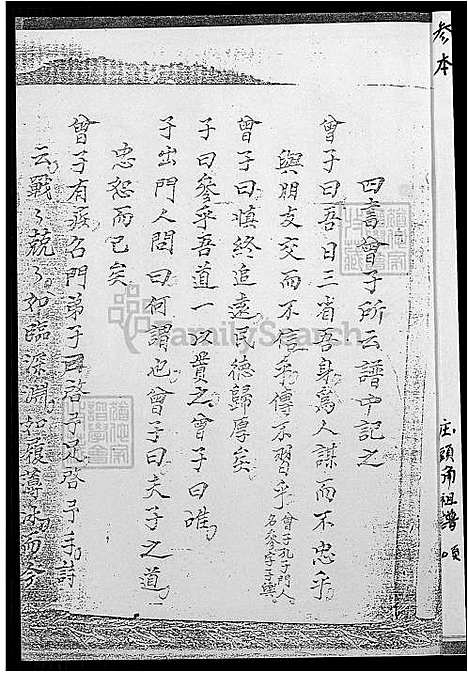 参本
庄頭角祖譜
四書曾子所云譜中記之
曾子曰吾日三省吾身為人謀而不忠乎
與朋友交而不信乎傳不習乎 曾子孔子門人名參字子輿
曾子曰慎終追遠民德歸厚矣
子曰參乎吾道一以貫之曾子曰唯
子出門人問曰何謂也曾子曰夫子之道
忠恕而已矣
曾子有疾召門弟子曰啓予足啓予手詩
云戰々兢々如臨深淵如履薄冰而今
FamilySearch